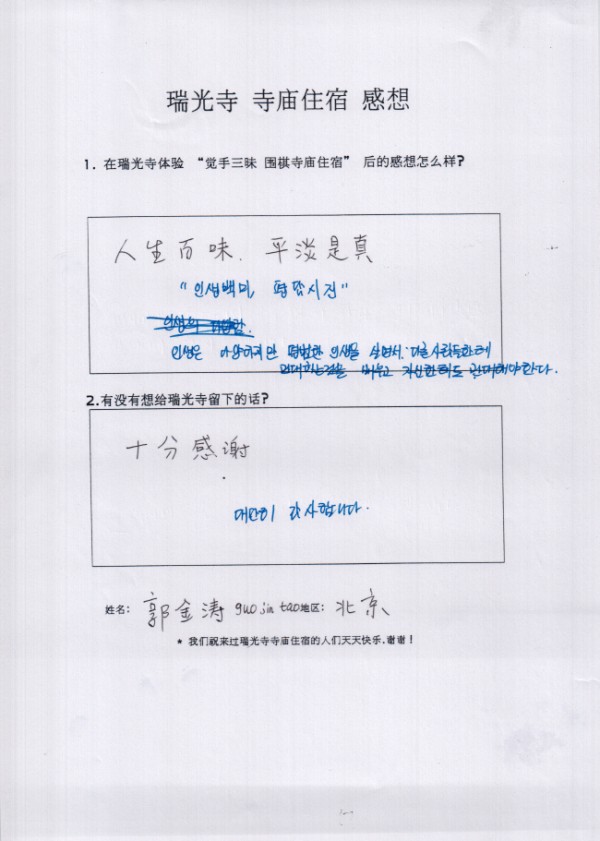 瑞光寺 寺庙住宿 感想
1. 在瑞光寺体验 “觉手三昧 围棋寺庙住宿” 后的感想怎么样?
人生百味. 平淡是真
"인생백미, 평담시진"
인생의
인생은 다양하지만 평범한 인생을 살면서. 다른 사람들한테
관대하는것을 배우고 자신한테도 관대해야한다.
2.有没有想给瑞光寺留下的话?
十分感谢
대단히 감사합니다.
姓名: 郭金涛 guo jin tao 地区: 北京
* 我们祝来过瑞光寺寺庙住宿的人们天天快乐.谢谢!